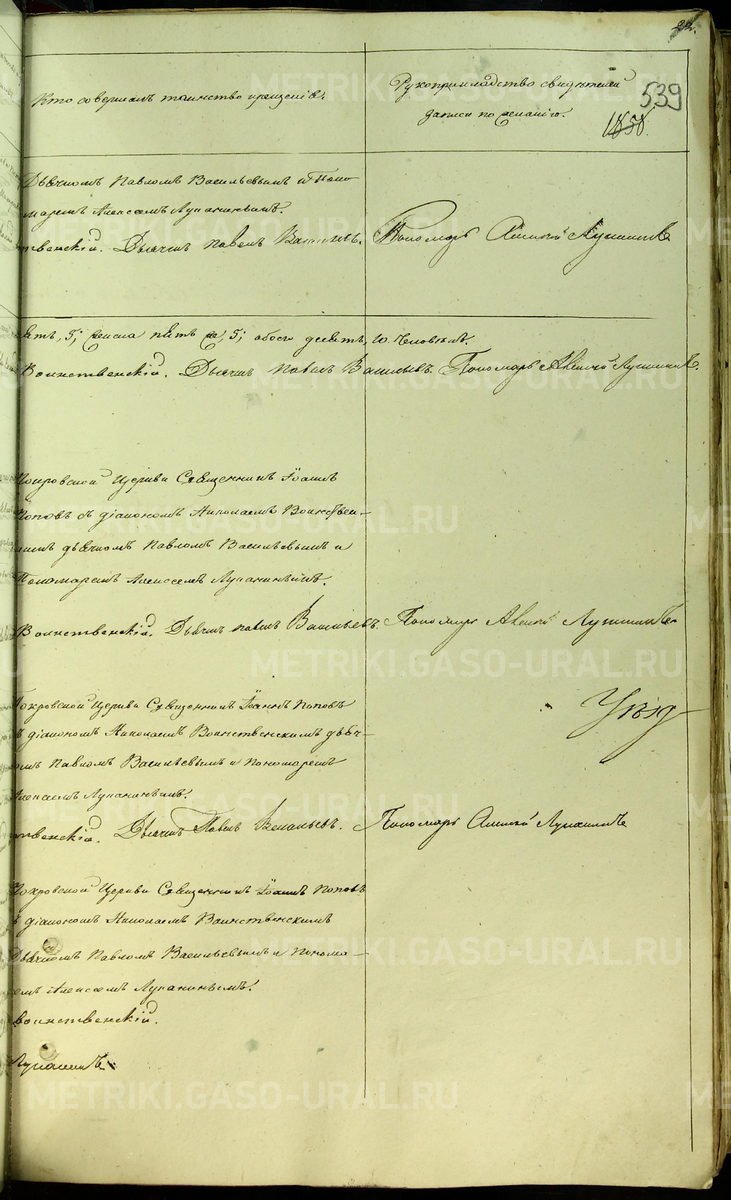 22.
539
Кто совершалъ таинство крещенія.
Рукоприкладство свидѣтелей
записи по желанію.
Дьячкомъ Павломъ Васильевымъ и Поно
маремъ Алексѣемъ Лупанинымъ.
твенскій. Дьячекъ Павелъ Васильевъ. Пономарь Алексѣй Лупанинъ
пять, 5; женска пять, 5; обоего десять, 10. человѣкъ.
Воинственскій. Дьячекъ Павелъ Васильевъ. Пономарь Алексѣй Лупанинъ.
Покровской Церкви Священникъ Іоаннъ
Поповъ съ діакономъ Николаемъ Воинствен-
скимъ дьячкомъ Павломъ Васильевымъ и
Пономаремъ Алексѣемъ Лупанинымъ.
Воинственскій. Дьячекъ Павелъ Васильевъ. Пономарь Алексѣй Лупанинъ
Покровской Церкви Священникъ Іоаннъ Поповъ
съ діакономъ Николаемъ Воинственскимъ дьяч-
омъ Павломъ Васильевымъ и пономаремъ
Алексѣемъ Лупанинымъ.
твенскій. Дьячекъ Павелъ Васильевъ. Пономарь Алексѣй Лупанинъ
Покровской Церкви Священникъ Іоаннъ Поповъ
съ діакономъ Николаемъ Воинственскимъ
Дьячкомъ Павломъ Васильевымъ и Понома-
емъ Алексѣемъ Лупанинымъ.
воинственскій.
Лупанинъ
METRIKI.GASO-URAL.RU